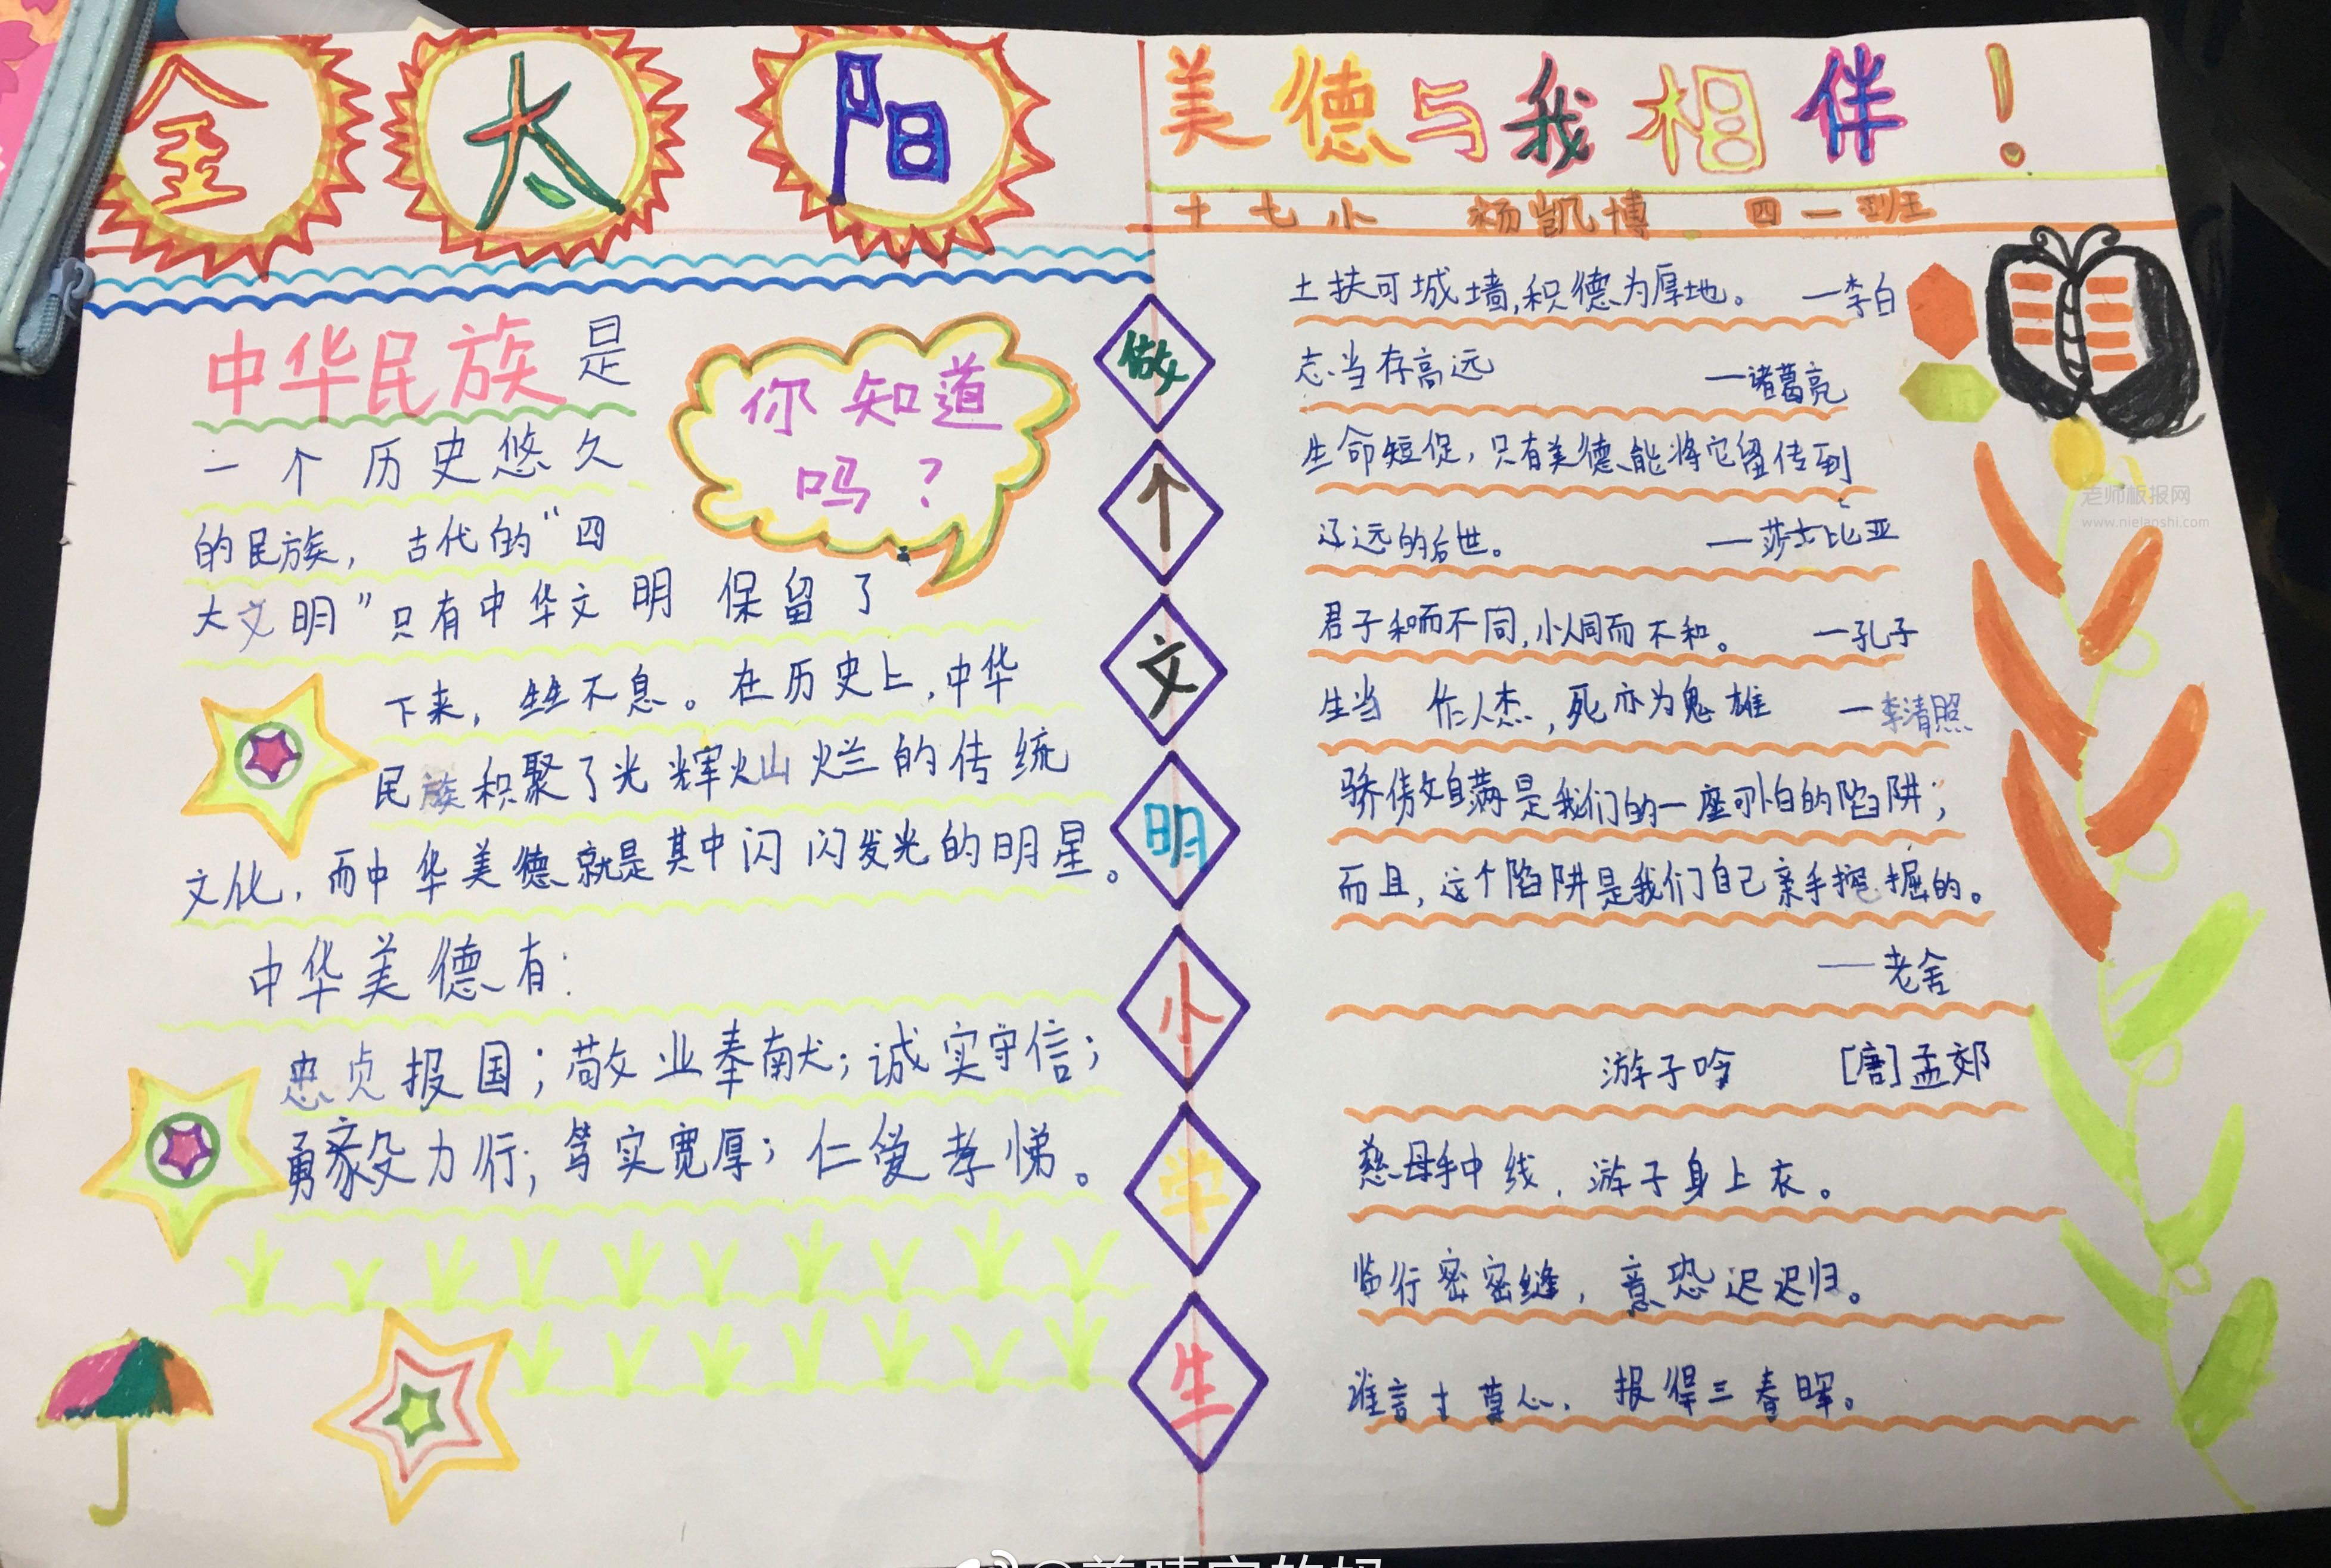 金太阳
中华民族是
一个历史悠久
的民族，古代的“四
大文明”只有中华文明保留了
下来，生生不息。在历史上，中华
民族积聚了光辉灿烂的传统
文化，而中华美德就是其中闪闪发光的明星。
中华美德有：
忠贞报国；敬业奉献；诚实守信；
勇毅力行；笃实宽厚；仁爱孝悌。
你知道
吗？
做
个
文
明
小
学
生
美德与我相伴！
十七小 杨凯博 四一班
土扶可城墙，积德为厚地。 —李白
志当存高远 —诸葛亮
生命短促，只有美德能将它留传到
辽远的后世。 —莎士比亚
君子和而不同，小人同而不和。 —孔子
生当作人杰，死亦为鬼雄 —李清照
骄傲自满是我们的一座可怕的陷阱；
而且，这个陷阱是我们自己亲手挖掘的。
——老舍
游子吟 [唐]孟郊
慈母手中线，游子身上衣。
临行密密缝，意恐迟迟归。
谁言寸草心，报得三春晖。
老师板报网
www.nielaoshi.com